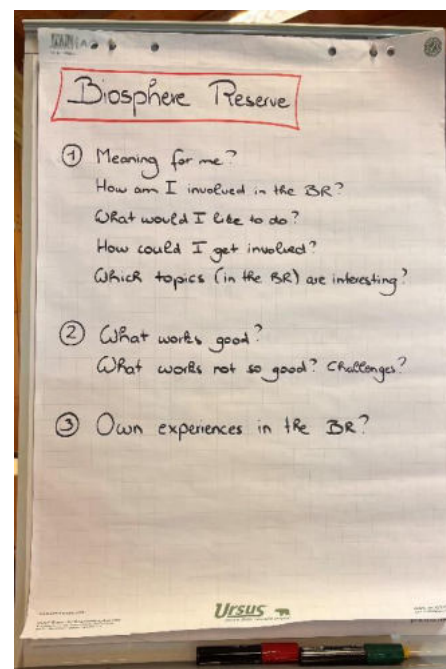 Biosphere Reserve
① Meaning for me?
How am I involved in the BR?
What would I like to do?
How could I get involved?
Which topics (in the BR) are interesting?
② What works good?
What works not so good? Challenges?
③ Own experiences in the BR?
Ursus